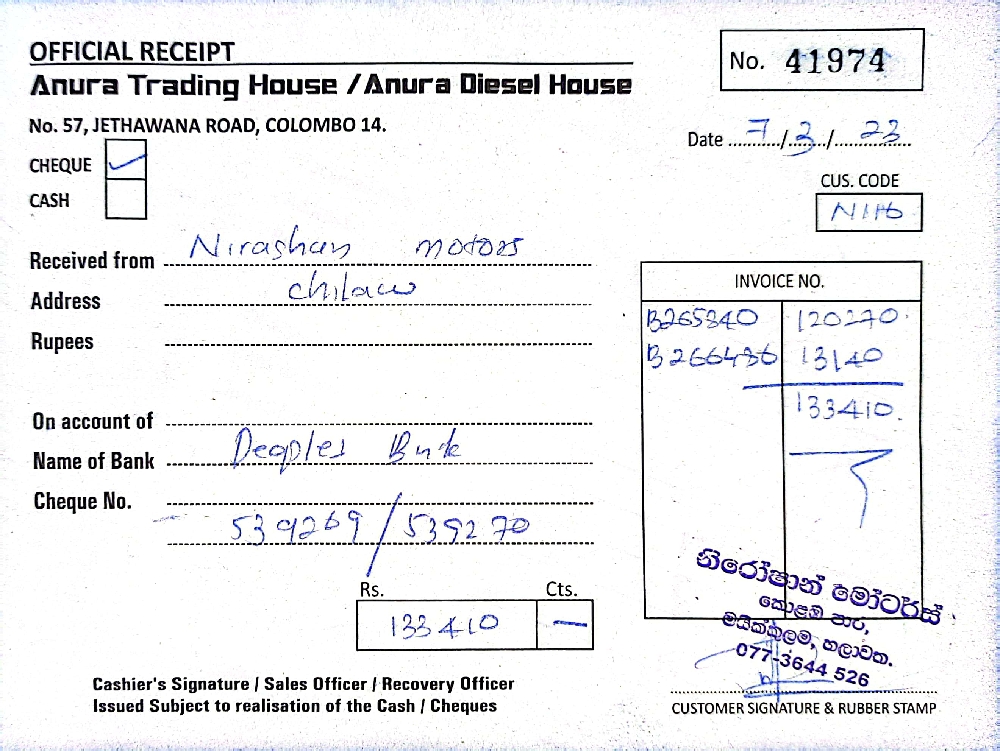 OFFICIAL RECEIPT
No. 41974
Anura Trading House / Anura Diesel House
No. 57, JETHAWANA ROAD, COLOMBO 14.
Date 7/3/23
CHEQUE ✓
CASH
CUS. CODE
Received from Nirashan motors
Address chilaw
Rupees
INVOICE NO.
B265840 120270.
B266486 13140
133410.
On account of
Name of Bank Peoples Bank
Cheque No.
539269 / 539270
Rs. Cts.
133410 —
නිරෝෂාන් මෝටර්ස්
කොළඹ පාර,
මයික්කුලම, හලාවත.
077-3644 526
Cashier's Signature / Sales Officer / Recovery Officer
Issued Subject to realisation of the Cash / Cheques
CUSTOMER SIGNATURE & RUBBER STAMP